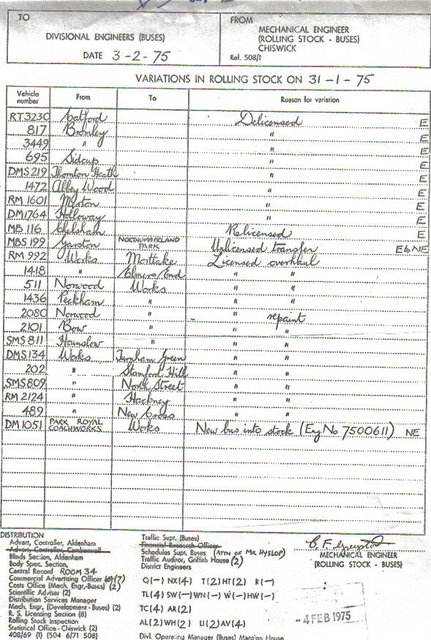 TO
DIVISIONAL ENGINEERS (BUSES)
DATE 3-2-75
FROM
MECHANICAL ENGINEER
(ROLLING STOCK - BUSES)
CHISWICK
Ref. 508/1
VARIATIONS IN ROLLING STOCK ON 31-1-75
Vehicle number From To Reason for variation
RT 3230 Catford Delicensed E
817 Bromley " E
3449 " " E
695 Sidcup " E
DMS 219 Thornton Heath " E
1472 Abbey Wood " E
RM 1601 Merton " E
DM1764 Holloway " E
MB 116 Relicensed E
MBS 199 Garston NORTHUMBERLAND PARK Unlicensed transfer E to NE
RM 992 Works Mortlake Licensed overhaul
1418 " " "
511 Norwood Works " "
1436 Peckham " " "
2080 Norwood " " repaint
2101 Bow " " "
SMS 811 Hounslow " " "
DMS 134 Works Turnham Green " "
202 " Stamford Hill " "
SMS 809 " North Street " "
RM 2124 " Hackney " "
489 " New Cross " "
DM 1051 PARK ROYAL COACHWORKS Works New bus into stock (Eng No 7500611) NE
DISTRIBUTION
Advert, Controller, Aldenham
Advert, Controller, Camberwell
Blinds Section, Aldenham
Body Spec. Section,
Central Record ROOM 34
Commercial Advertising Officer (7)
Costs Office (Mech. Engr.-Buses) (2)
Scientific Adviser (2)
Distribution Services Manager
Mech. Engr, (Development - Buses) (2)
R. S. Licensing Section (8)
Rolling Stock Inspection
Statistical Office - Chiswick (2)
408/69 (1) (504 6/71 508)
Traffic Supt. (Buses)
Schedules Supt, Buses (ATTN OF MR HYSLOP)
Traffic Auditor, Griffith House (2)
District Engineers
Q(-) NX(4) T(2) HT(2) R(-)
TL(4) SW(-) WN(-) W(-) HW(-)
TC(4) AR(2)
AL(2) WH(2) U(2) AV(4)
Divl. Operating Manager (Buses) Mansion House
MECHANICAL ENGINEER
(ROLLING STOCK - BUSES)
-4 FEB 1975